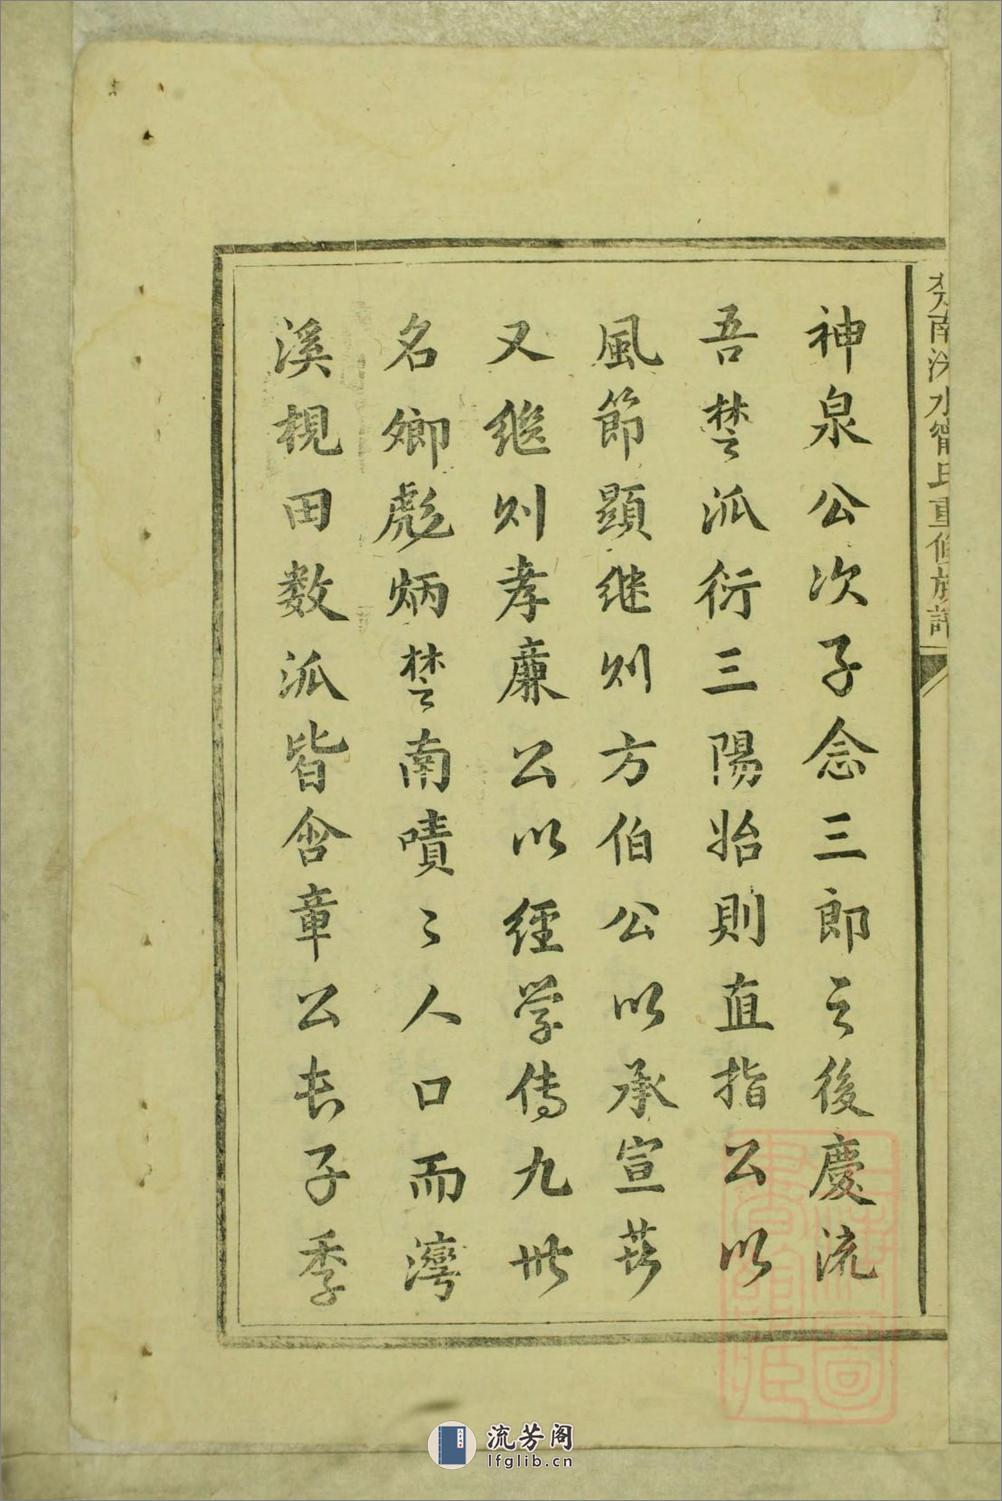 南 水甯氏重修族譜
神泉公次子念三郎之後慶流
吾楚派衍三陽始則直指公以
風節顕継則方伯公以承宣著
又継则孝廉公以經学传九世
名卿彪炳楚南嘖〻人口而灣
溪枧田数派皆含章公长子季
流芳阁
lfglib.cn